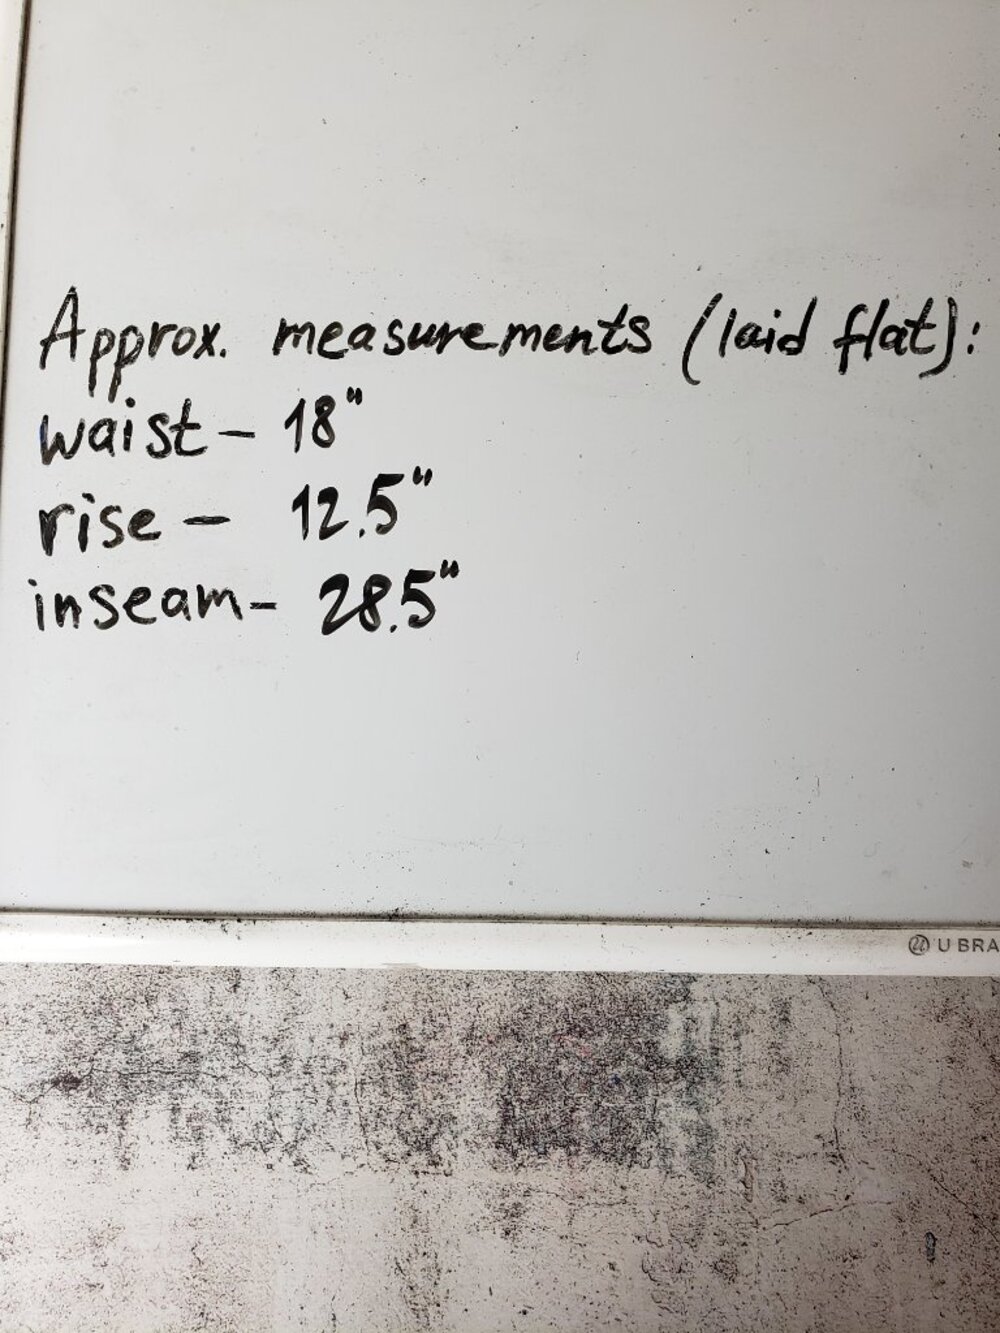 Approx. measurements (laid flat):
waist – 18"
rise – 12.5"
inseam – 28.5"
U BRA